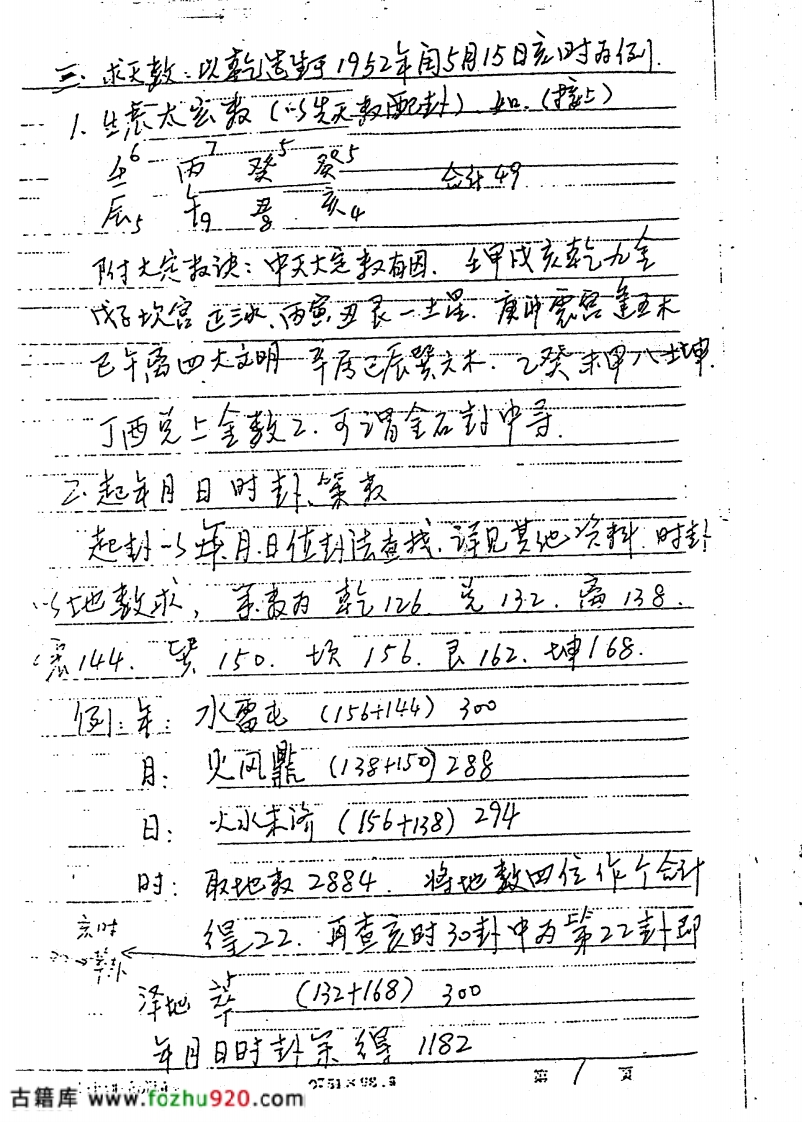 三、求天数:以乾造生于1952年闰5月15日亥时为例.
1、生辰太玄数(以先天数配卦).如.(接上)
壬6 丙7 癸5 癸5 合计49
辰5 午9 丑8 亥4
附大定数诀:中天大定数有因.壬甲戌亥乾九金
戊子坎宫正三水.丙寅丑艮一土星.庚卯震宫逢五木
巳午离四大文明 辛居巳辰巽六木.乙癸未甲八土坤.
丁酉兑上金数2.可谓金石封中寻.
2.起年月日时卦、策数
起卦以年月.日值卦法查找.详见其他资料.时卦
以地数求,策数为 乾126 兑132.离138.
震144.巽150.坎156.艮162.坤168.
例:年:水雷屯 (156+144) 300
月:火风鼎 (138+150) 288
日:火水未济 (156+138) 294
时:取地数2884.将地数四位作个合计
亥时
得22.再查亥时30卦中为第22卦即
萃卦
泽地萃 (132+168) 300
年月日时卦策得 1182
第 1 页
古籍库 www.fozhu920.com